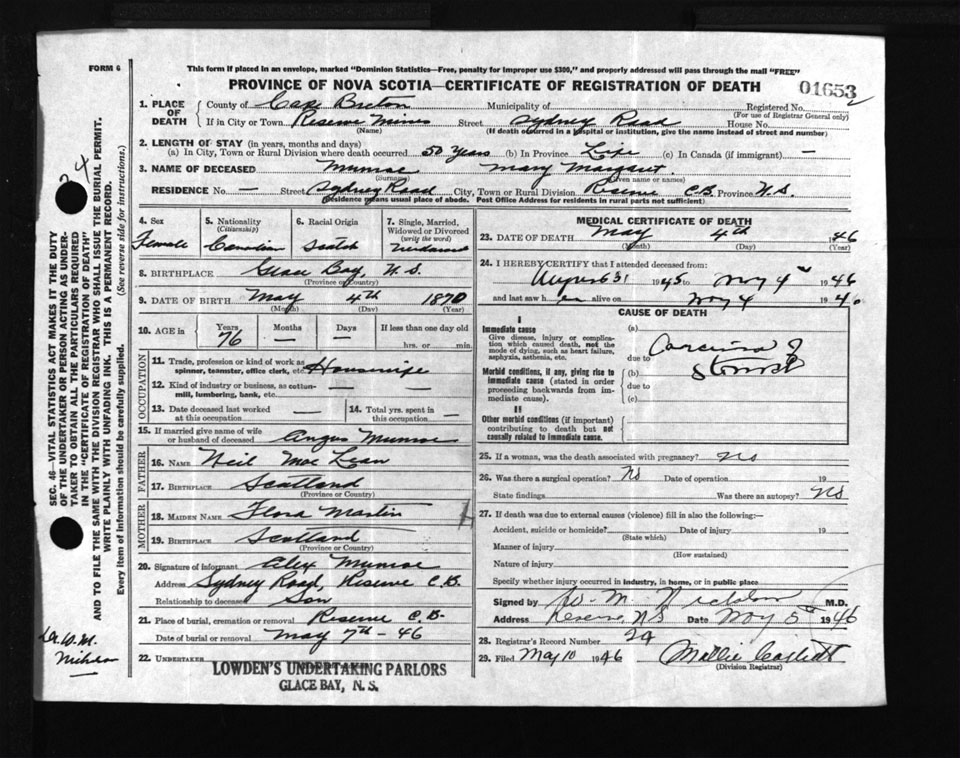 FORM 6
This form if placed in an envelope, marked "Dominion Statistics—Free, penalty for improper use $300," and properly addressed will pass through the mail "FREE"
PROVINCE OF NOVA SCOTIA—CERTIFICATE OF REGISTRATION OF DEATH
01653
1. PLACE OF DEATH
County of Cape Breton Municipality of Registered No.
(For use of Registrar General only)
If in City or Town Reserve Mines Street Sydney Road House No.
(Name) (If death occurred in a hospital or institution, give the name instead of street and number)
2. LENGTH OF STAY (in years, months and days)
(a) In City, Town or Rural Division where death occurred 50 years (b) In Province Life (c) In Canada (if immigrant) —
3. NAME OF DECEASED Munroe Mary Margaret
(Surname) (Given name or names)
RESIDENCE No. — Street Sydney Road City, Town or Rural Division Reserve C.B. Province N.S.
(Residence means usual place of abode. Post Office Address for residents in rural parts not sufficient)
4. Sex
Female
5. Nationality
(Citizenship)
Canadian
6. Racial Origin
Scotch
7. Single, Married, Widowed or Divorced
(write the word)
Widowed
8. BIRTHPLACE Glace Bay, N.S.
(Province or Country)
9. DATE OF BIRTH May 4th 1870
(Month) (Day) (Year)
10. AGE in
Years Months Days If less than one day old
76 — — hrs. or min.
OCCUPATION
11. Trade, profession or kind of work as spinner, teamster, office clerk, etc. Housewife
12. Kind of industry or business, as cotton-mill, lumbering, bank, etc. —
13. Date deceased last worked at this occupation —
14. Total yrs. spent in this occupation —
15. If married give name of wife or husband of deceased Angus Munroe
FATHER
16. NAME Neil Mac Lean
17. BIRTHPLACE Scotland
(Province or Country)
MOTHER
18. MAIDEN NAME Flora Martin
19. BIRTHPLACE Scotland
(Province or Country)
20. Signature of informant Alex Munroe
Address Sydney Road, Reserve C.B.
Relationship to deceased Son
21. Place of burial, cremation or removal Reserve C.B.
Date of burial or removal May 7th - 46
22. UNDERTAKER
LOWDEN'S UNDERTAKING PARLORS
GLACE BAY, N. S.
MEDICAL CERTIFICATE OF DEATH
23. DATE OF DEATH May 4th 1946
(Month) (Day)
24. I HEREBY CERTIFY that I attended deceased from:
August 31 1945 to May 4 1946
and last saw her alive on May 4 1946
CAUSE OF DEATH
I
Immediate cause
Give disease, injury or complication which caused death, not the mode of dying, such as heart failure, asphyxia, asthenia, etc.
(a) Carcinoma of
due to Stomach
Morbid conditions, if any, giving rise to immediate cause (stated in order proceeding backwards from immediate cause).
(b)
due to
(c)
II
Other morbid conditions (if important) contributing to death but not causally related to immediate cause.
25. If a woman, was the death associated with pregnancy? No
26. Was there a surgical operation? No Date of operation 19
State findings Was there an autopsy? No
27. If death was due to external causes (violence) fill in also the following:—
Accident, suicide or homicide? Date of injury 19
(State which)
Manner of injury
(How sustained)
Nature of injury
Specify whether injury occurred in industry, in home, or in public place
Signed by W. M. M.D.
Address Reserve, N.S. Date May 5th 1946
28. Registrar's Record Number 24
29. Filed May 10 1946 Mollie
(Division Registrar)
24
SEC. 46—VITAL STATISTICS ACT MAKES IT THE DUTY
OF THE UNDERTAKER OR PERSON ACTING AS UNDER-
TAKER TO OBTAIN ALL THE PARTICULARS REQUIRED
IN THE "CERTIFICATE OF REGISTRATION OF DEATH"
AND TO FILE THE SAME WITH THE DIVISION REGISTRAR WHO SHALL ISSUE THE BURIAL PERMIT.
WRITE PLAINLY WITH UNFADING INK. THIS IS A PERMANENT RECORD.
Every item of information should be carefully supplied. (See reverse side for instructions.)